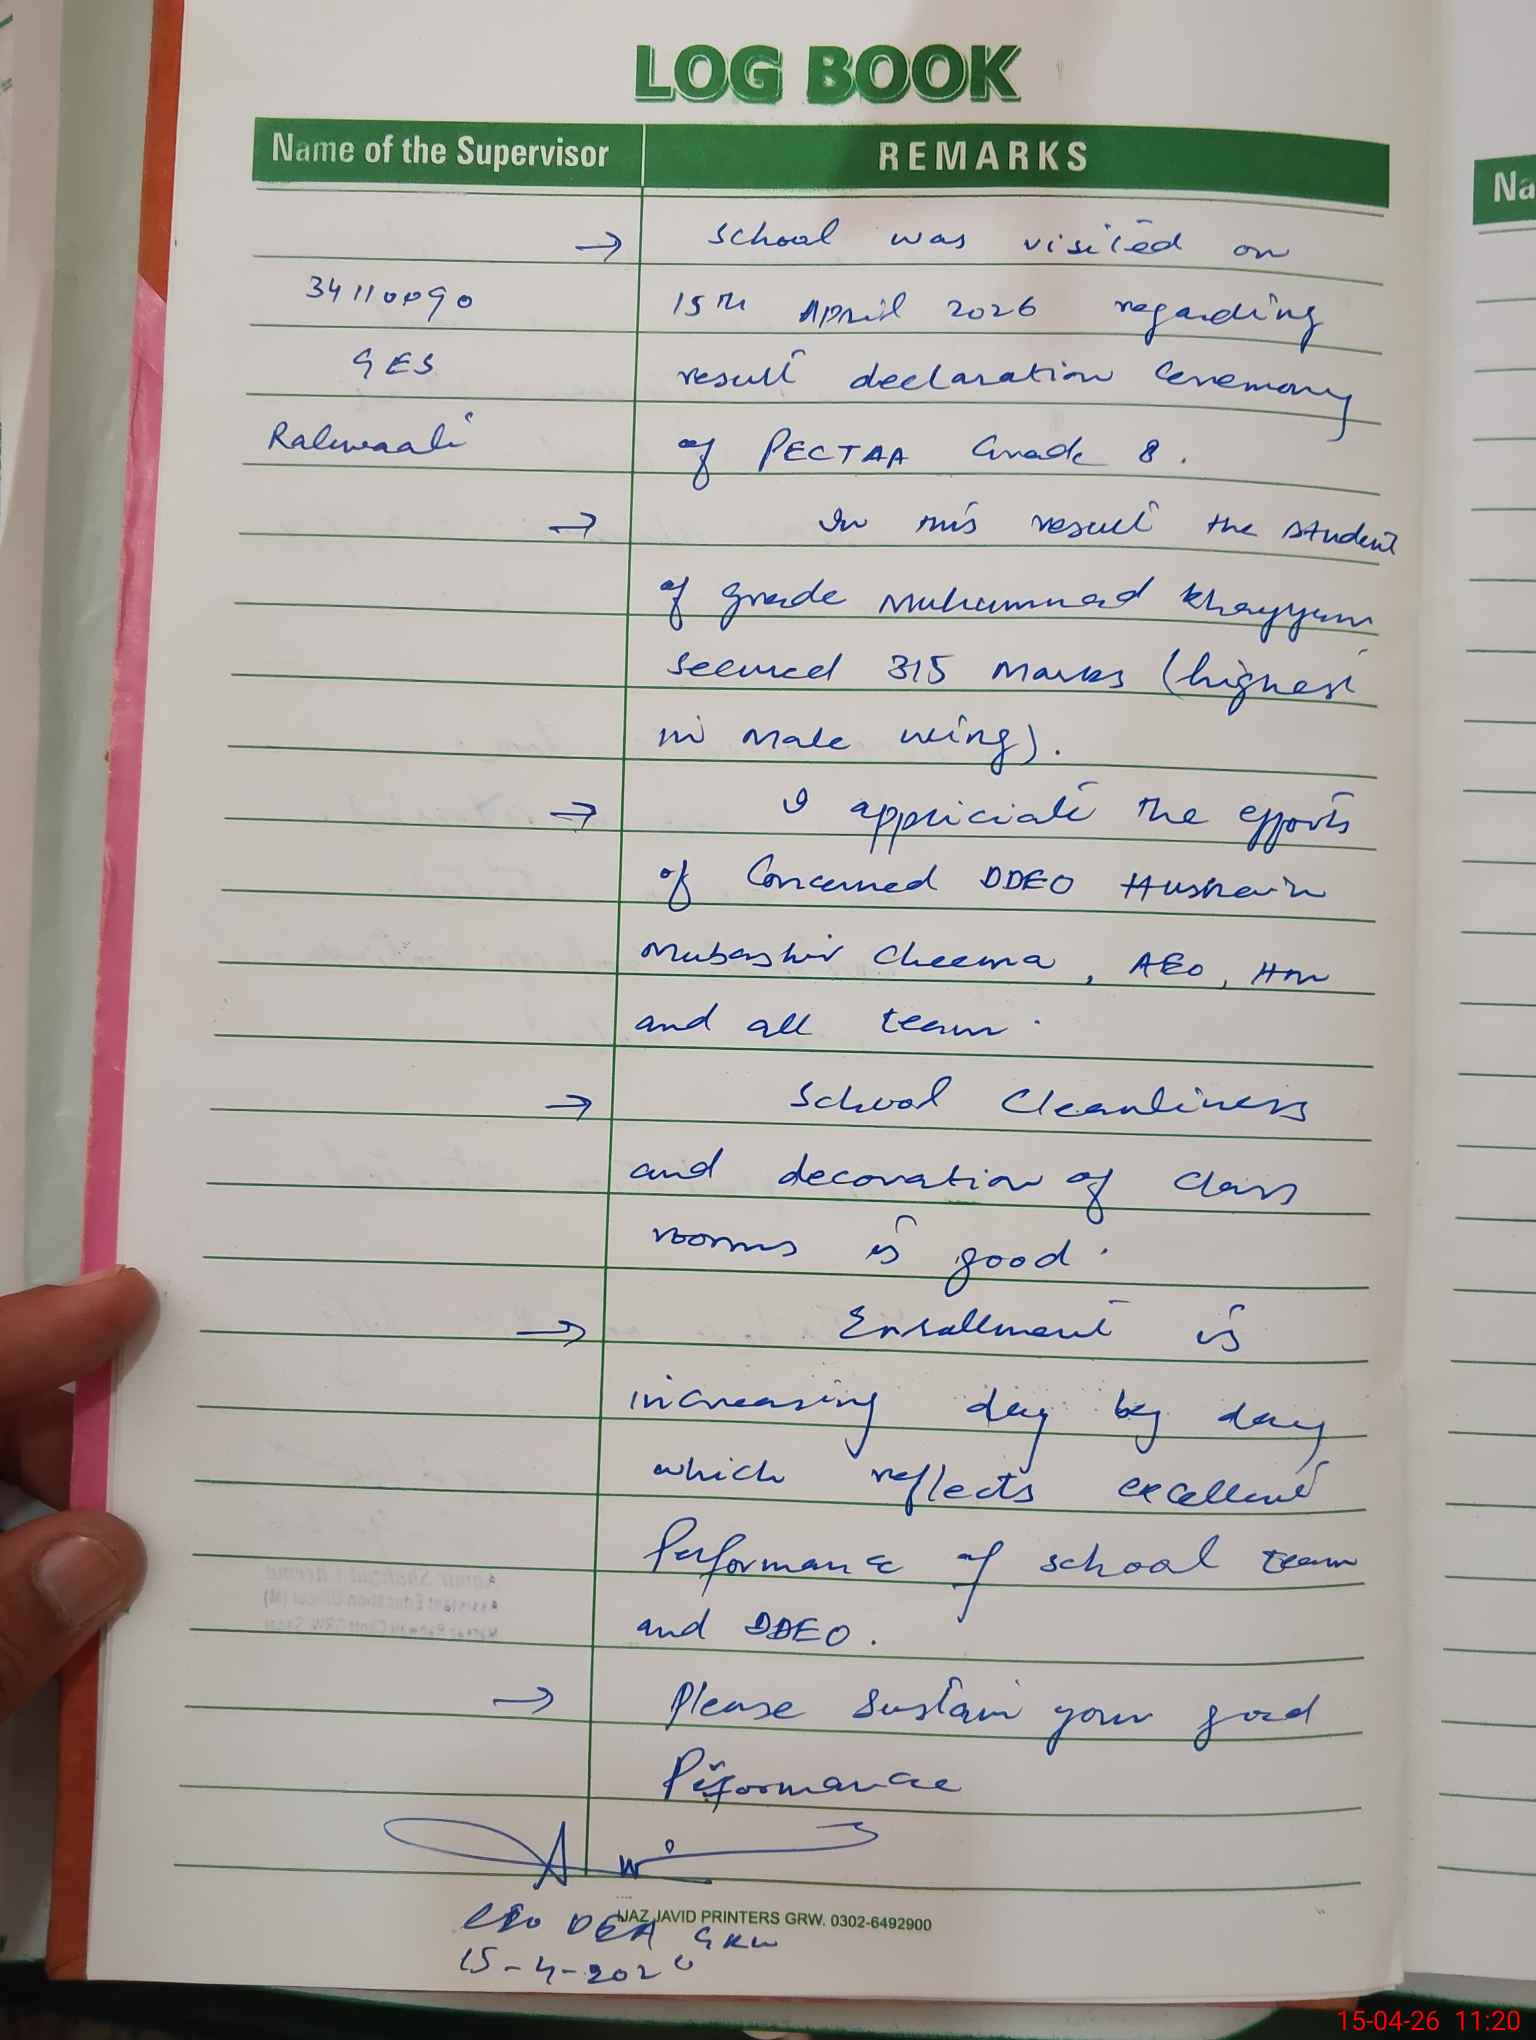 LOG BOOK
Name of the Supervisor REMARKS
Na
→ School was visited on
34110090 15th April 2026 regarding
GES result declaration Ceremony
Rahwaali of PECTAA Grade 8.
→ In this result the student
of grade Muhammad Khayyam
secured 315 Marks (highest
in Male wing).
→ I appriciate the efforts
of Concerned DDEO Husnain
Mubashir Cheema, AEO, Hm
and all team.
→ School Cleanliness
and decoration of Class
rooms is good.
→ Enrollment is
increasing day by day
which reflects excellent
Performance of school team
and DDEO.
→ Please sustain your good
Performance
IJAZ JAVID PRINTERS GRW. 0302-6492900
CEO DEA GRW
15-4-2026
15-04-26 11:20